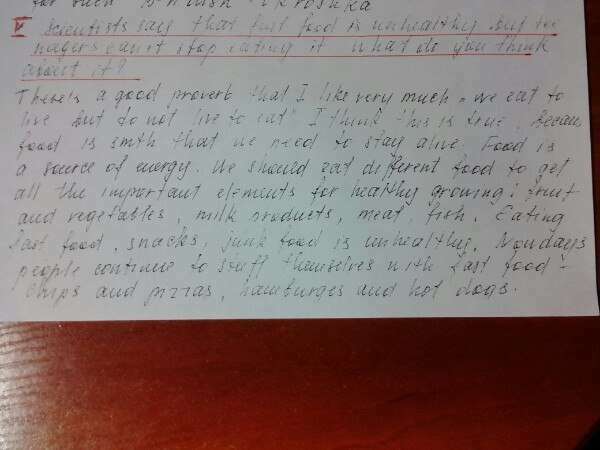 for such
V Scientists say that fast food is unhealthy but tee
nagers can't stop eating it what do you think
about it?
There's a good proverb that I like very much "we eat to
live but do not live to eat" I think this is true. Becau
food is smth that we need to stay alive. Food is
a source of energy. We should eat different food to get
all the important elements for healthy growing: fruit
and vegetables, milk products, meat, fish. Eating
fast food, snacks, junk food is unhealthy. Nowdays
people continue to stuff themselves with fast food -
chips and pizzas, hamburges and hot dogs.